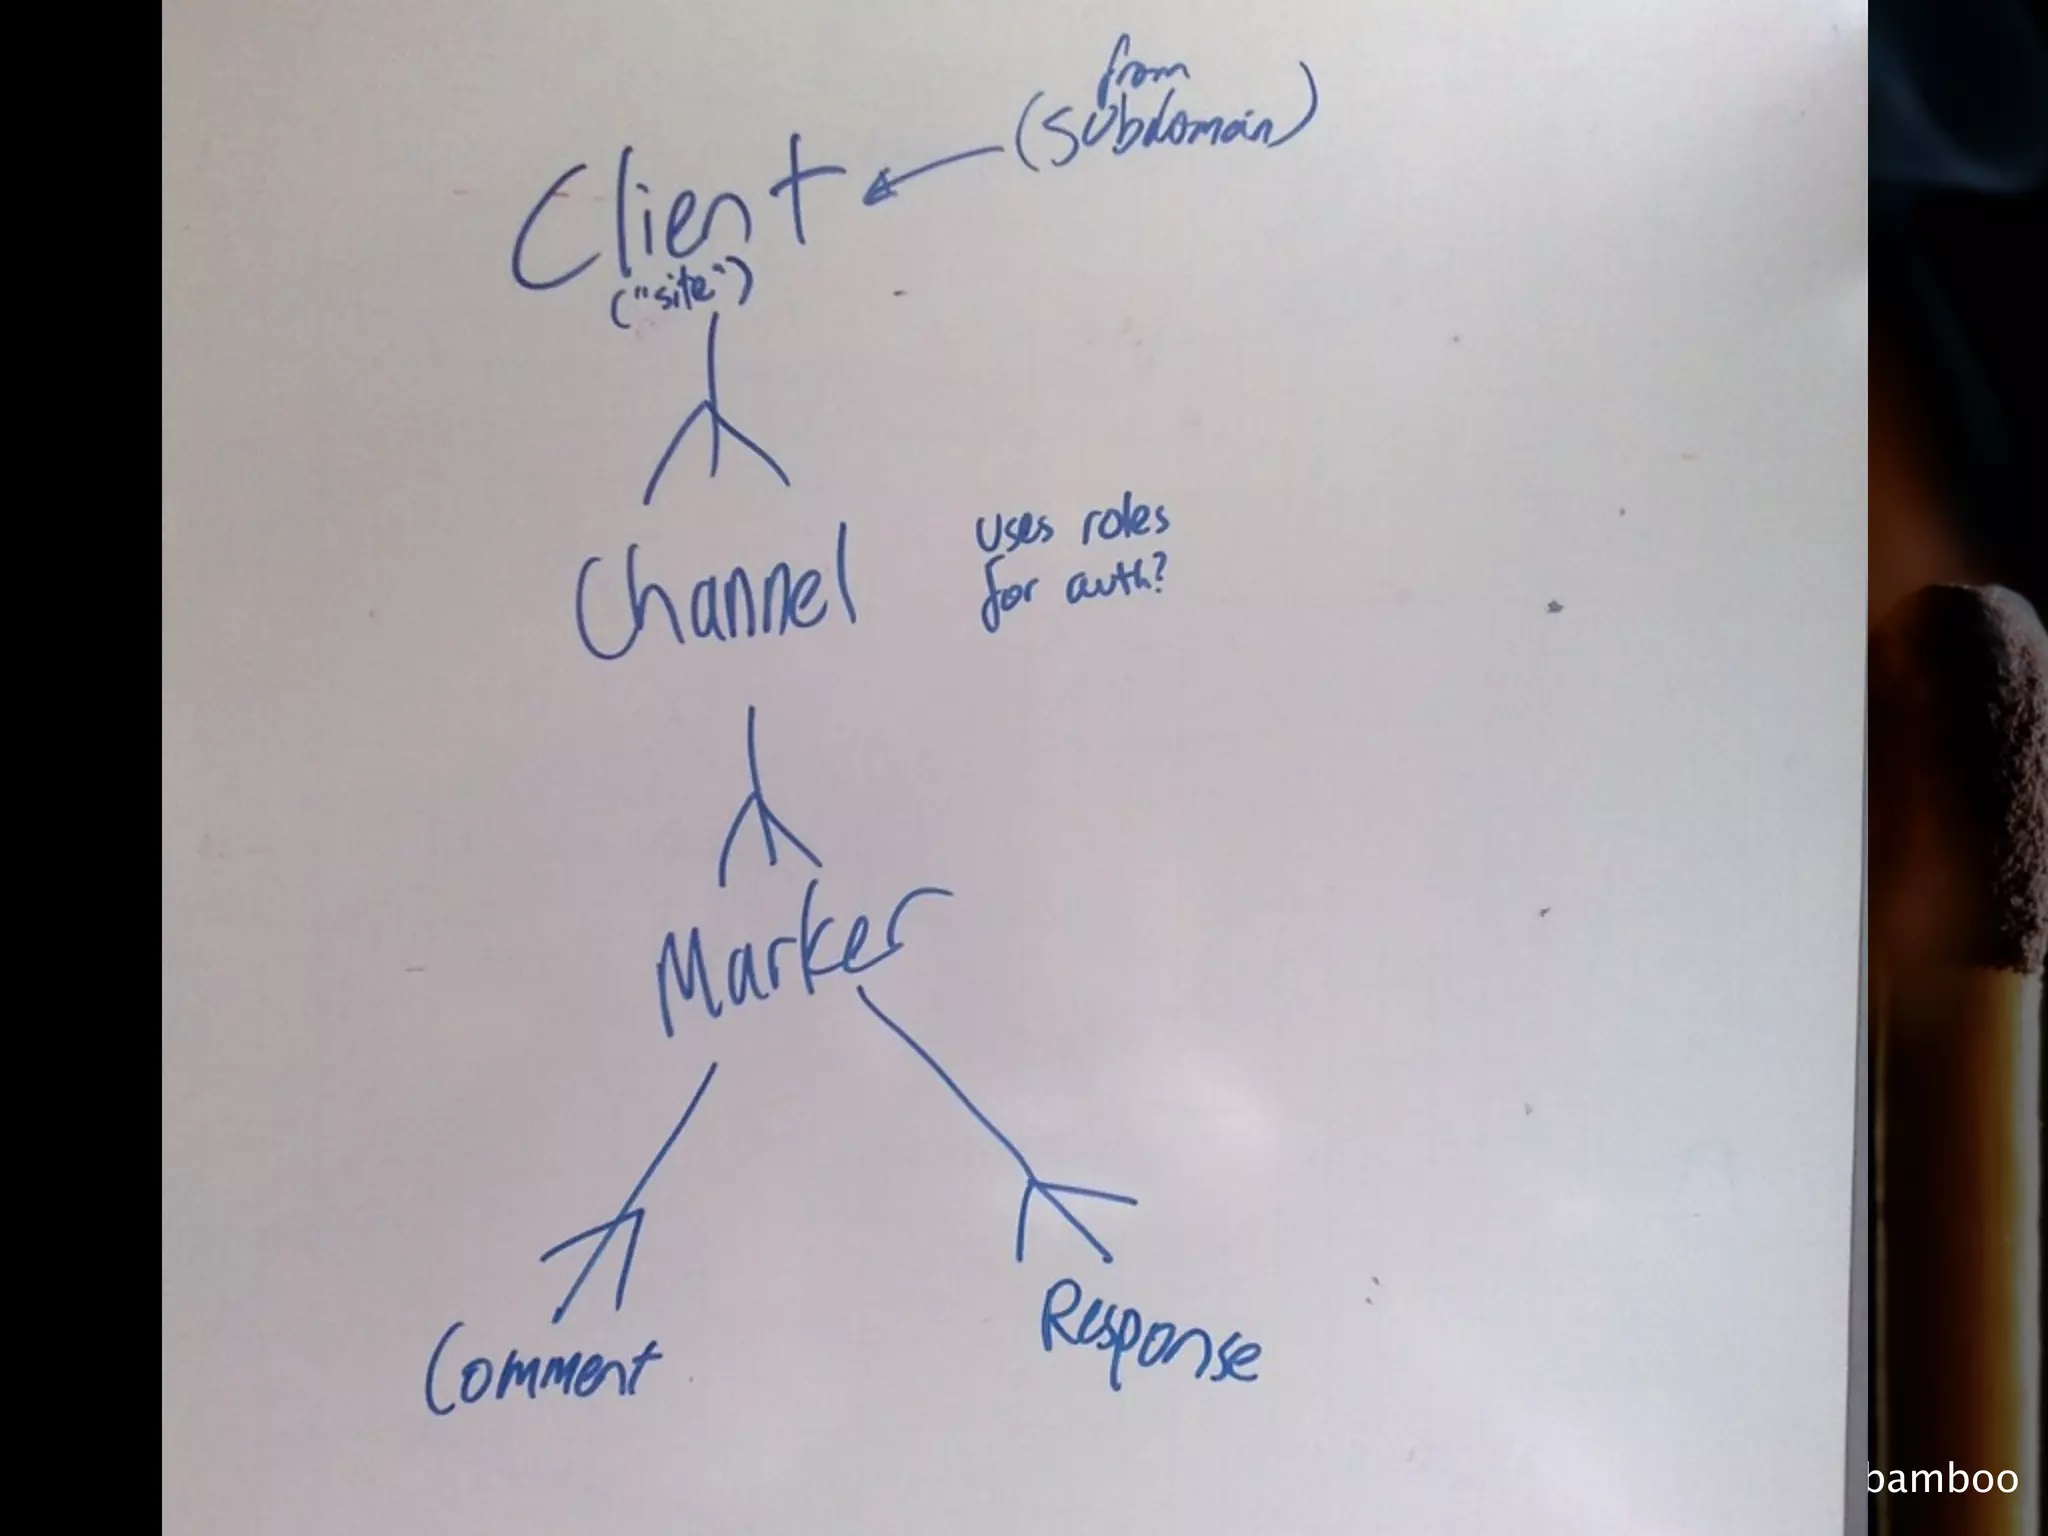 from
(subdomain)
Client
("site")
Channel
uses roles
for auth?
Marker
Comment
Response
bamboo